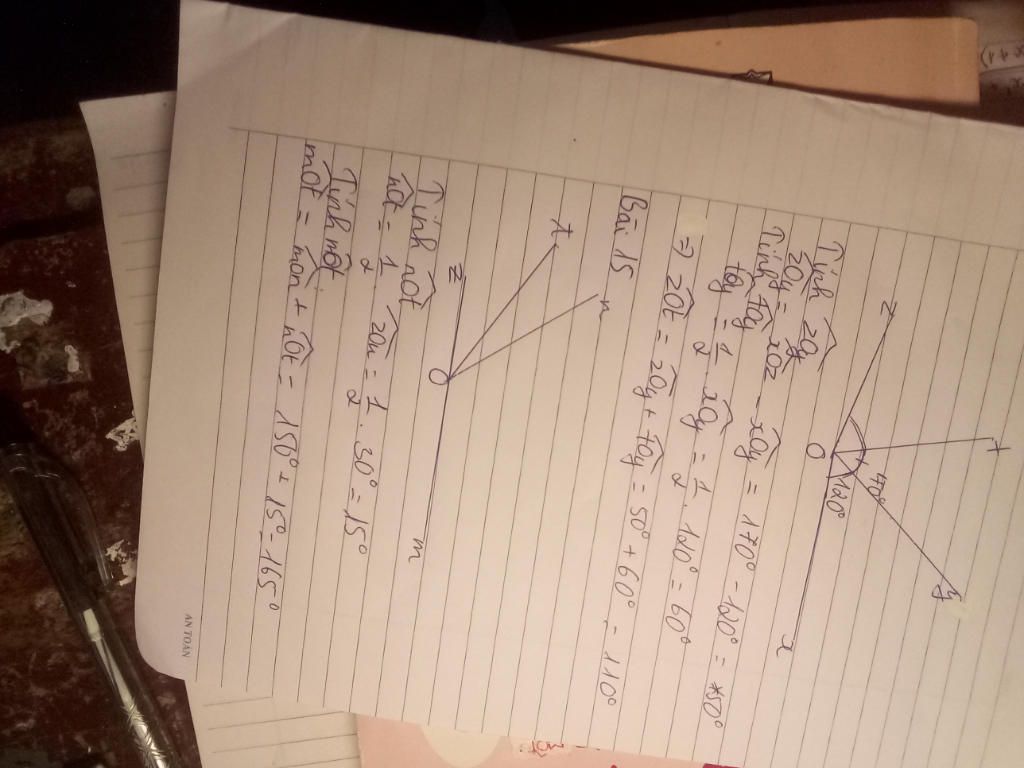 z
t
y
O
170°
120°
x
Tính zOy
zOy = xOz - xOy = 170° - 120° = 50°
Tính tOy
tOy = 1/2 . xOy = 1/2 . 120° = 60°
=> zOt = zOy + tOy = 50° + 60° = 110°
Bài 15
t
n
z
O
m
Tính nOt
nOt = 1/2 . zOn = 1/2 . 30° = 15°
Tính mOt
mOt = mOn + nOt = 150° + 15° = 165°
AN TOÀN